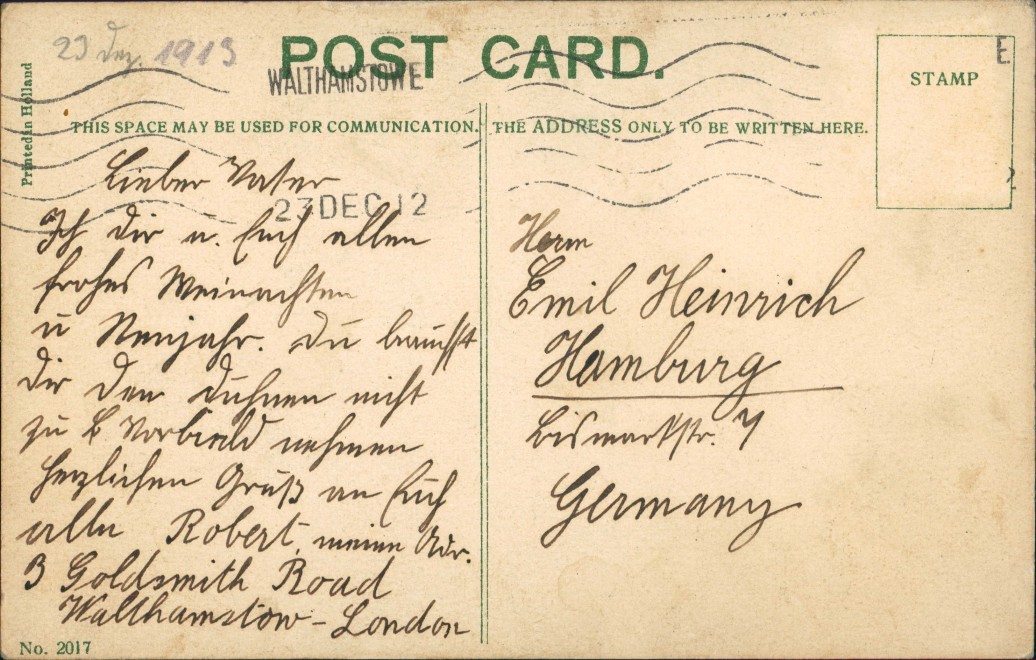 23 Dez. 1913
POST CARD.
WALTHAMSTOWE
E
STAMP
Printed in Holland
THIS SPACE MAY BE USED FOR COMMUNICATION.
THE ADDRESS ONLY TO BE WRITTEN HERE.
23 DEC 12
Lieber Vater
Ich dir u. Euch allen
frohes Weinachten
u Neujahr. Du brauchst
dir den nicht
zu Vorbield nehmen
herzlichen Gruß an Euch
alle Robert, meine Adr.
3 Goldsmith Road
Walthamstow - London
Herrn
Emil Heinrich
Hamburg
Bismarkstr. 7
Germany
No. 2017